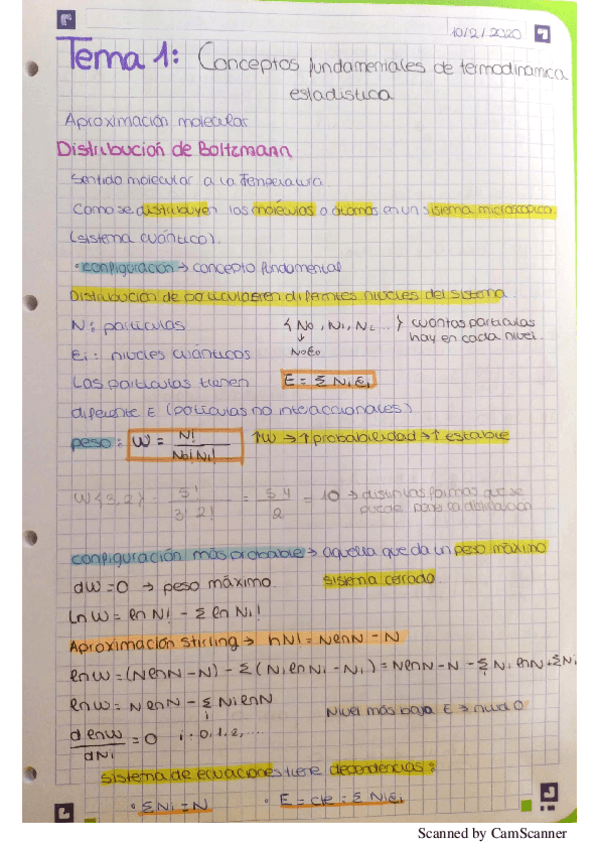 10/2/2020
Tema 1: Conceptos fundamentales de termodinámica
estadística
Aproximación molecular
Distribución de Boltzmann
Sentido molecular a la temperatura.
Como se distribuyen las moléculas o átomos en un sistema microscópico
(sistema cuántico).
· configuración → concepto fundamental
Distribución de partículas en diferentes niveles del sistema.
N: partículas {N₀, N₁, N₂ ...} cuantas partículas
↓ hay en cada nivel.
Ei: niveles cuánticos N₀E₀
Las partículas tienen E = Σ Niεi
diferente E (partículas no interaccionales)
peso: W = N! / N₀! N₁! ↑W → ↑ probabilidad → ↑ estable
W{3,2} = 5! / 3! 2! = 5·4 / 2 = 10 → distintas formas que se
puede la distribución
configuración más probable → aquella que da un peso máximo
dW=0 → peso máximo. sistema cerrado.
ln W = ln N! - Σ ln Ni!
Aproximación Stirling → ln N! = N ln N - N
ln W = (N ln N - N) - Σ (Ni ln Ni - Ni) = N ln N - N - Σ Ni ln Ni + Σ Ni
ln W = N ln N - Σ Ni ln N
i Nivel más bajo E → nivel 0
d ln W / dNi = 0 i: 0, 1, 2, ...
Sistema de ecuaciones tiene dependencias:
· Σ Ni = N · E = cte = Σ Niεi
Scanned by CamScanner